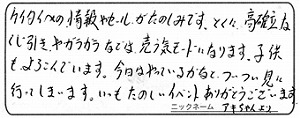 ケイタイへの情報やセールがたのしみです。とくに、高確立な
くじ引き、やガラガラなどは、売う気モードになります。子供
もよろこんでいます。今日はやっているかなと、ついつい見に
行ってしまいます。いつもたのしいイベントありがとうございます。
ニックネーム アキちゃんより